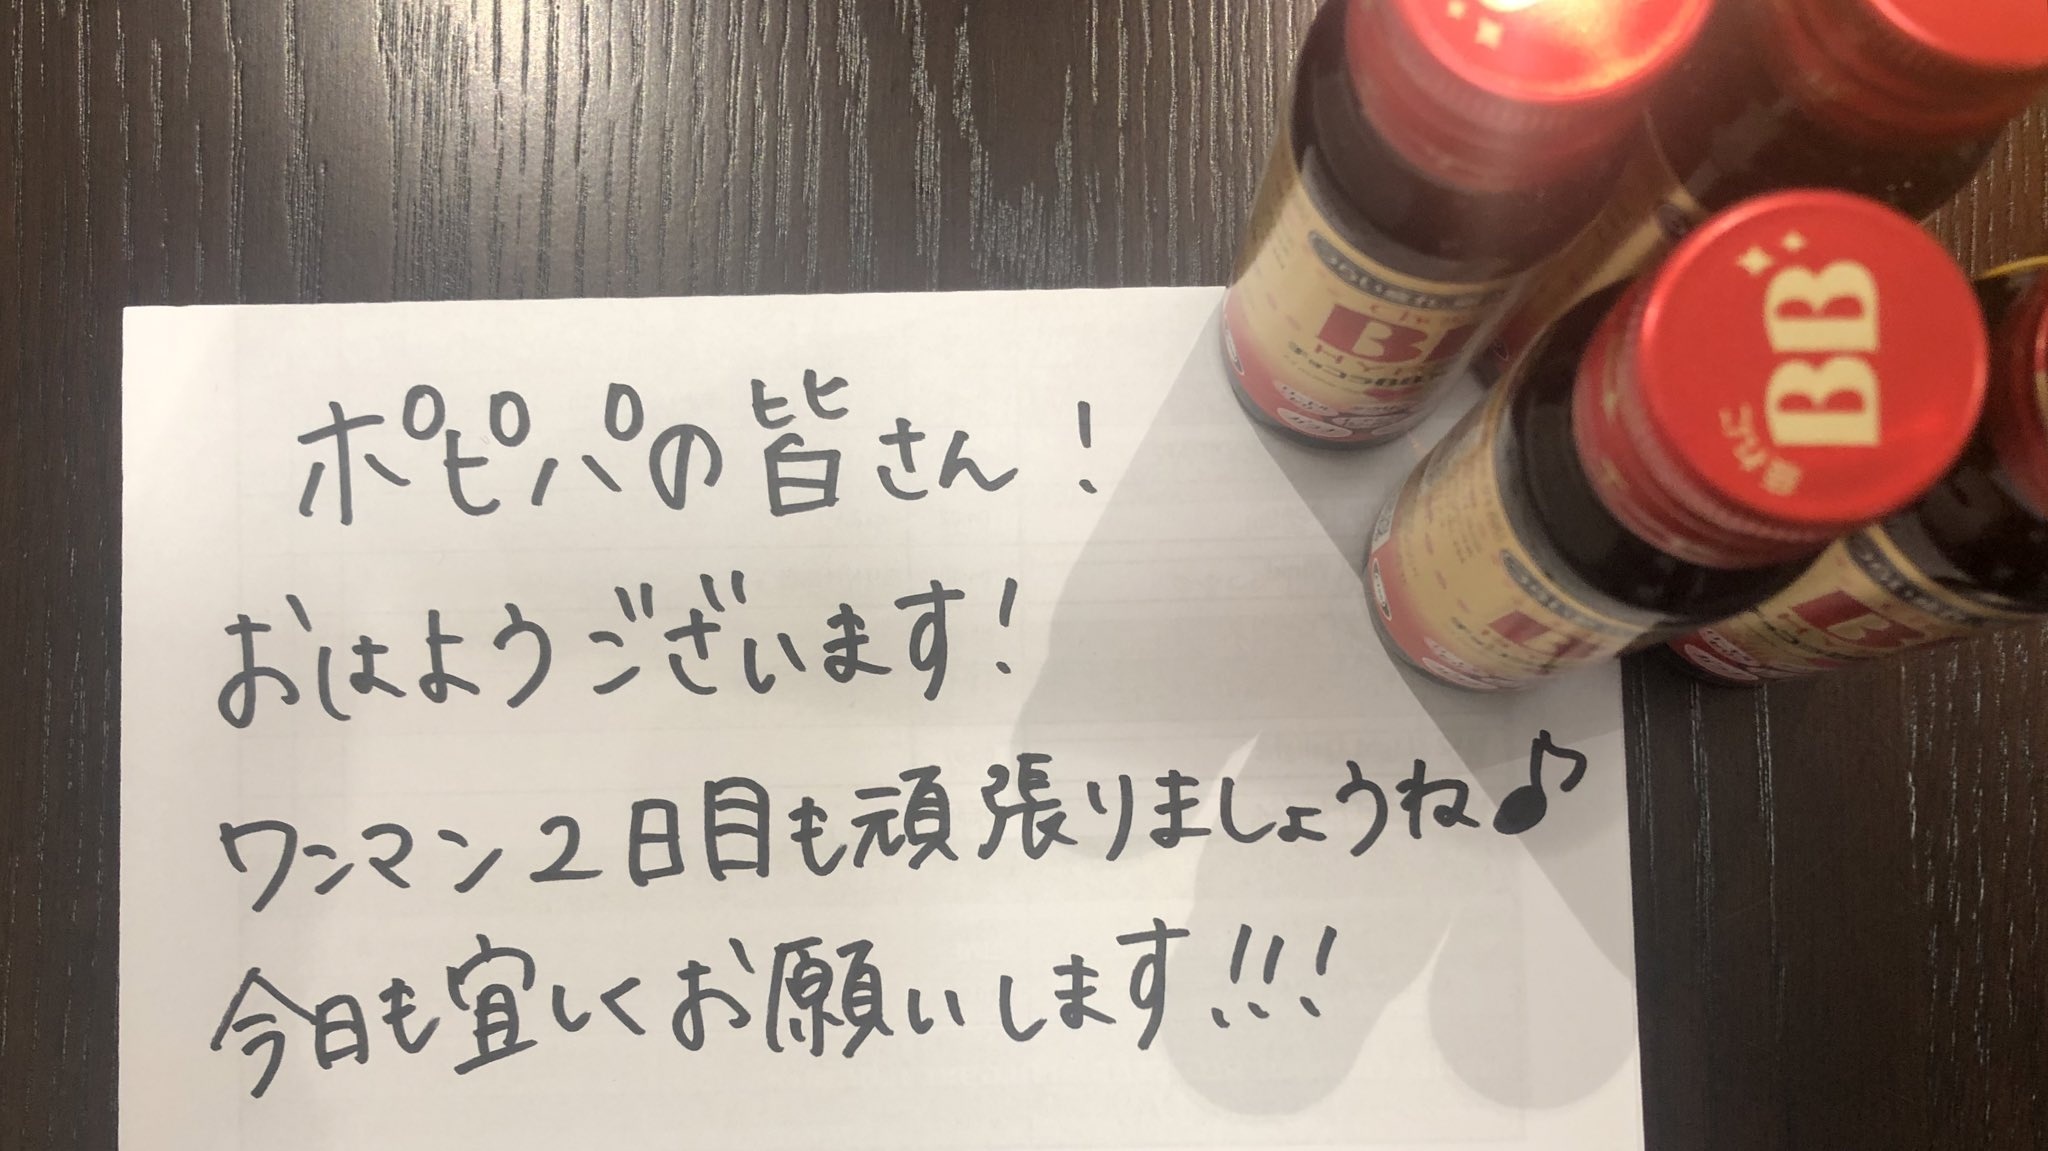 ポピパの皆さん！
おはようございます！
ワンマン2日目も頑張りましょうね♪
今日も宜しくお願いします！！！
BB
チョコラBB